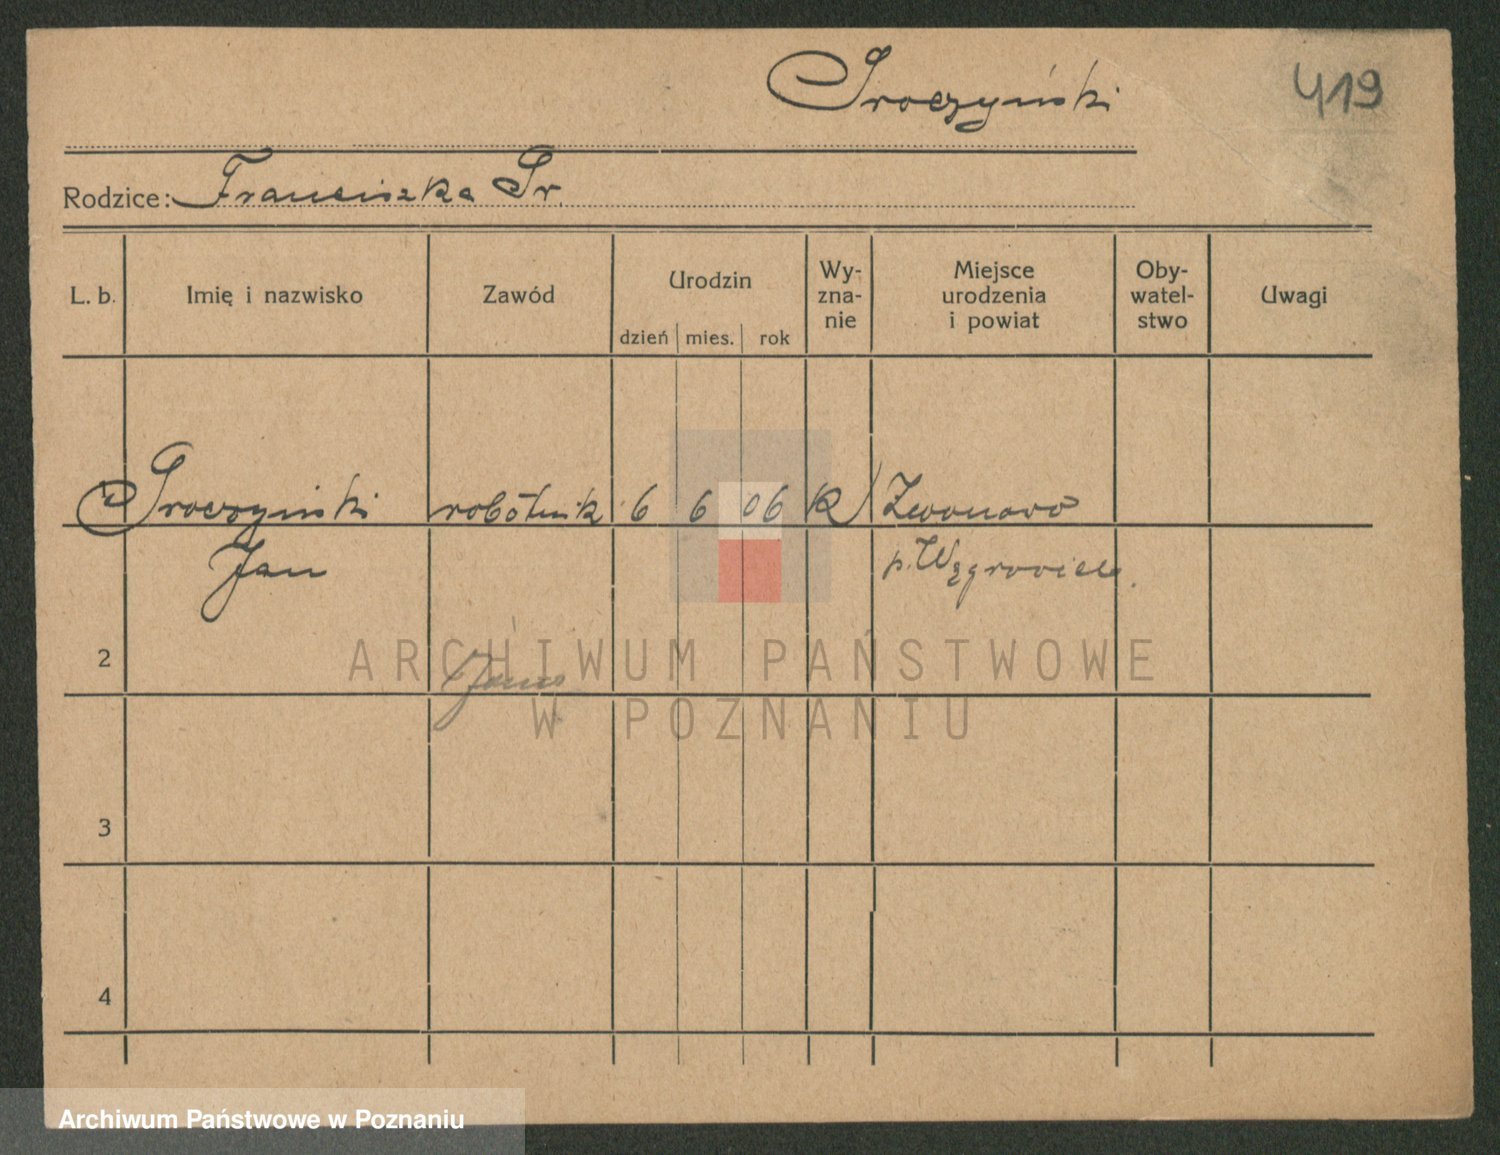 Sroczyński
419
Rodzice: Franciszka Sr.
L. b. Imię i nazwisko Zawód Urodzin dzień mies. rok Wy-zna-nie Miejsce urodzenia i powiat Oby-watel-stwo Uwagi
1 Sroczyński robotnik 6 6 06 K
Jan p. Wągrowiec.
2
ARCHIWUM PAŃSTWOWE
W POZNANIU
3
4
Archiwum Państwowe w Poznaniu